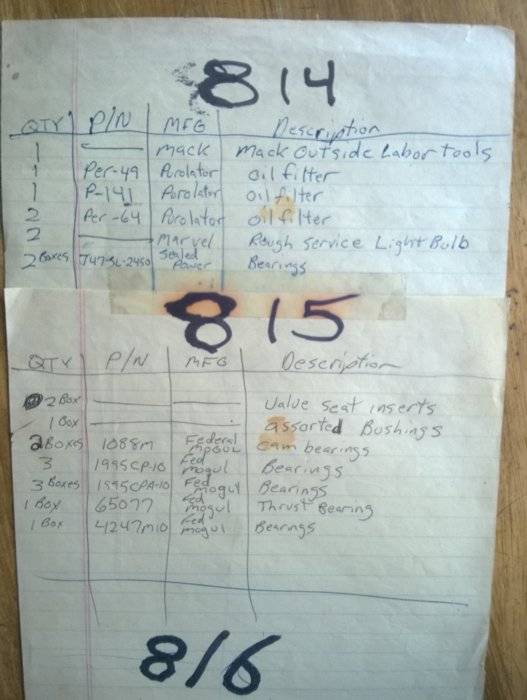 814
QTY P/N MFG Description
1 Mack Mack Outside Labor Tools
1 Per-49 Purolator oil filter
1 P-141 Purolator oil filter
2 Per-64 Purolator oil filter
2 Marvel Rough Service Light Bulb
2 Boxes Sealed Power Bearings
815
QTY P/N MFG Description
2 Box Value seat inserts
1 Box assorted Bushings
2 Boxes 1088M Federal Mogul cam bearings
3 1995CP-10 Fed mogul Bearings
3 Boxes Fed mogul Bearings
1 Box 65077 Fed mogul Thrust Bearing
1 Box 4247M10 Fed mogul Bearings
816